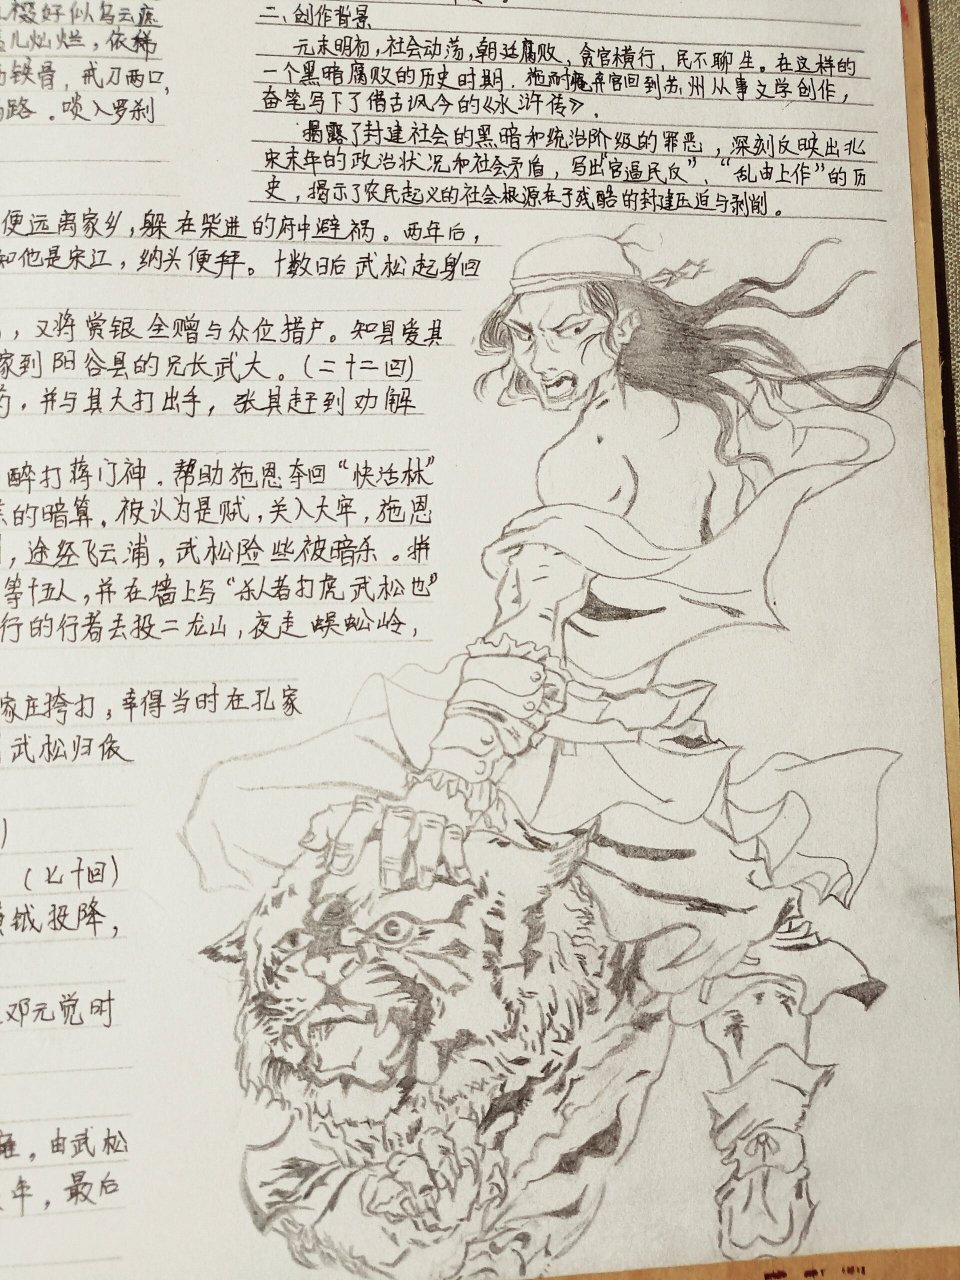 好似乌云遮
儿灿烂，依稀
铁骨，戒刀两口，
路。啖入罗刹
二、创作背景
元末明初，社会动荡，朝廷腐败，贪官横行，民不聊生。在这样的
一个黑暗腐败的历史时期，施耐庵弃官回到苏州从事文学创作，
奋笔写下了借古讽今的《水浒传》。
揭露了封建社会的黑暗和统治阶级的罪恶，深刻反映出北
宋末年的政治状况和社会矛盾，写出“官逼民反”、“乱由上作”的历
史，揭示了农民起义的社会根源在于残酷的封建压迫与剥削。
便远离家乡，躲在柴进的府中避祸。两年后，
知他是宋江，纳头便拜。十数日后武松起身回
，又将赏银全赠与众位猎户。知县爱其
家到阳谷县的兄长武大。（二十二回）
，并与其大打出手，张其赶到劝解
醉打蒋门神，帮助施恩夺回“快活林”
的暗算，被认为是贼，关入大牢，施恩
，途经飞云浦，武松险些被暗杀。拼
等十五人，并在墙上写“杀人者打虎武松也”
行的行者去投二龙山，夜走蜈蚣岭，
家庄挎打，幸得当时在孔家
武松归依
）
（七十回）
钺投降，
邓元觉时
，由武松
年，最后